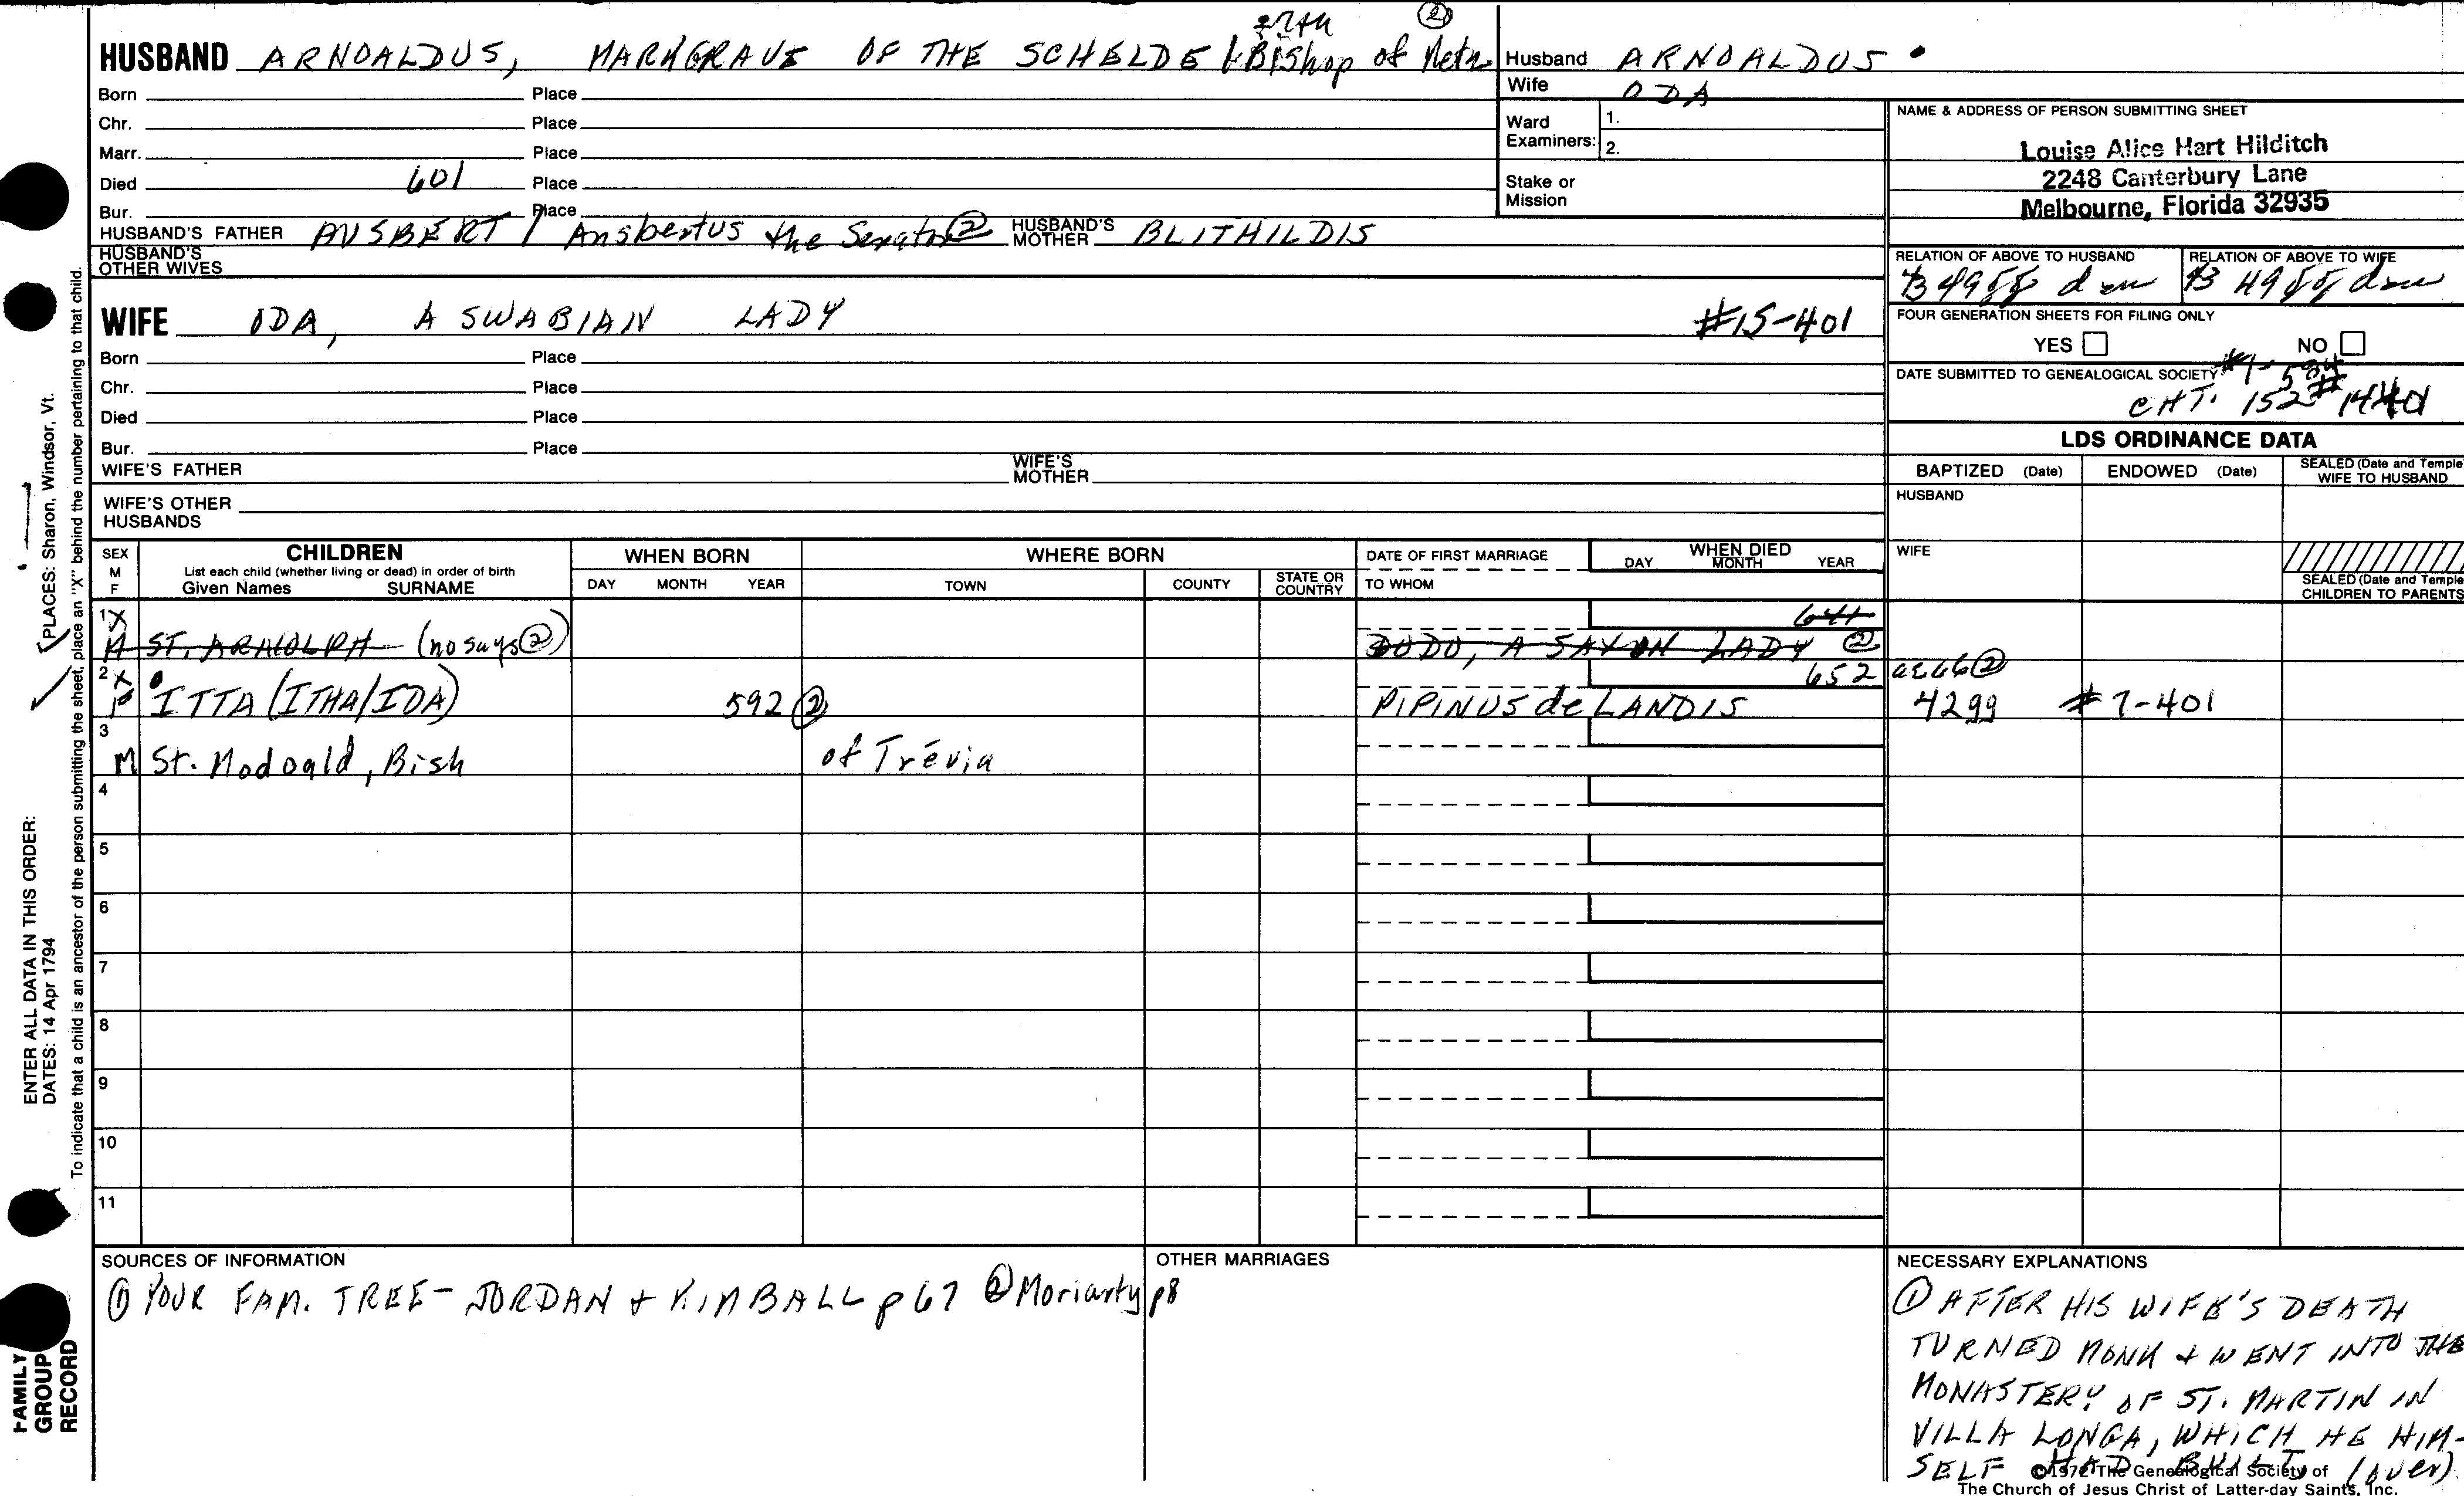 27th ②
HUSBAND ARNOALDUS, MARKGRAVE OF THE SCHELDE & Bishop of Metz
Born Place
Chr. Place
Marr. Place
Died 601 Place
Bur. Place
HUSBAND'S FATHER ANSBERT / Ansbertus the Senator ② HUSBAND'S MOTHER BLITHILDIS
HUSBAND'S OTHER WIVES
WIFE ODA, A SWABIAN LADY #15-401
Born Place
Chr. Place
Died Place
Bur. Place
WIFE'S FATHER WIFE'S MOTHER
WIFE'S OTHER HUSBANDS
Husband ARNOALDUS
Wife ODA
Ward Examiners: 1.
2.
Stake or Mission
NAME & ADDRESS OF PERSON SUBMITTING SHEET
Louise Alice Hart Hilditch
2248 Canterbury Lane
Melbourne, Florida 32935
RELATION OF ABOVE TO HUSBAND RELATION OF ABOVE TO WIFE
FOUR GENERATION SHEETS FOR FILING ONLY
YES NO
DATE SUBMITTED TO GENEALOGICAL SOCIETY
CHT. 152
LDS ORDINANCE DATA
BAPTIZED (Date) ENDOWED (Date) SEALED (Date and Temple) WIFE TO HUSBAND
HUSBAND
WIFE
SEALED (Date and Temple) CHILDREN TO PARENTS
SEX M F
CHILDREN
List each child (whether living or dead) in order of birth
Given Names SURNAME
WHEN BORN
DAY MONTH YEAR
WHERE BORN
TOWN COUNTY STATE OR COUNTRY
DATE OF FIRST MARRIAGE
TO WHOM
WHEN DIED
DAY MONTH YEAR
1 X 641
M ST. ARNOLPH (no says ②) DODO, A SAXON LADY ②
2 X 652 ae 66 ②
F ITTA (ITHA/IDA) 592 ② PIPINUS de LANDIS 4299 #7-401
3
M St. Modoald, Bish of Trévia
4
5
6
7
8
9
10
11
SOURCES OF INFORMATION
① YOUR FAM. TREE - JORDAN + KIMBALL p 67 ② Moriarty p8
OTHER MARRIAGES
NECESSARY EXPLANATIONS
① AFTER HIS WIFE'S DEATH
TURNED MONK + WENT INTO THE
MONASTERY OF ST. MARTIN IN
VILLA LONGA, WHICH HE HIM-
SELF HAD BUILT (over).
©1972 The Genealogical Society of
The Church of Jesus Christ of Latter-day Saints, Inc.
ENTER ALL DATA IN THIS ORDER:
DATES: 14 Apr 1794
PLACES: Sharon, Windsor, Vt.
To indicate that a child is an ancestor of the person submitting the sheet, place an "X" behind the number pertaining to that child.
FAMILY
GROUP
RECORD